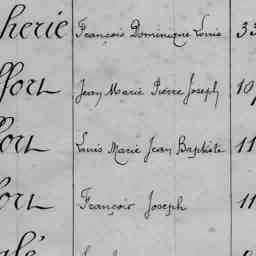 herie François Dominique Louis 33
ffort Jean Marie Pierre Joseph 10
fort Louis Marie Jean Baptiste 11
fort François Joseph 11